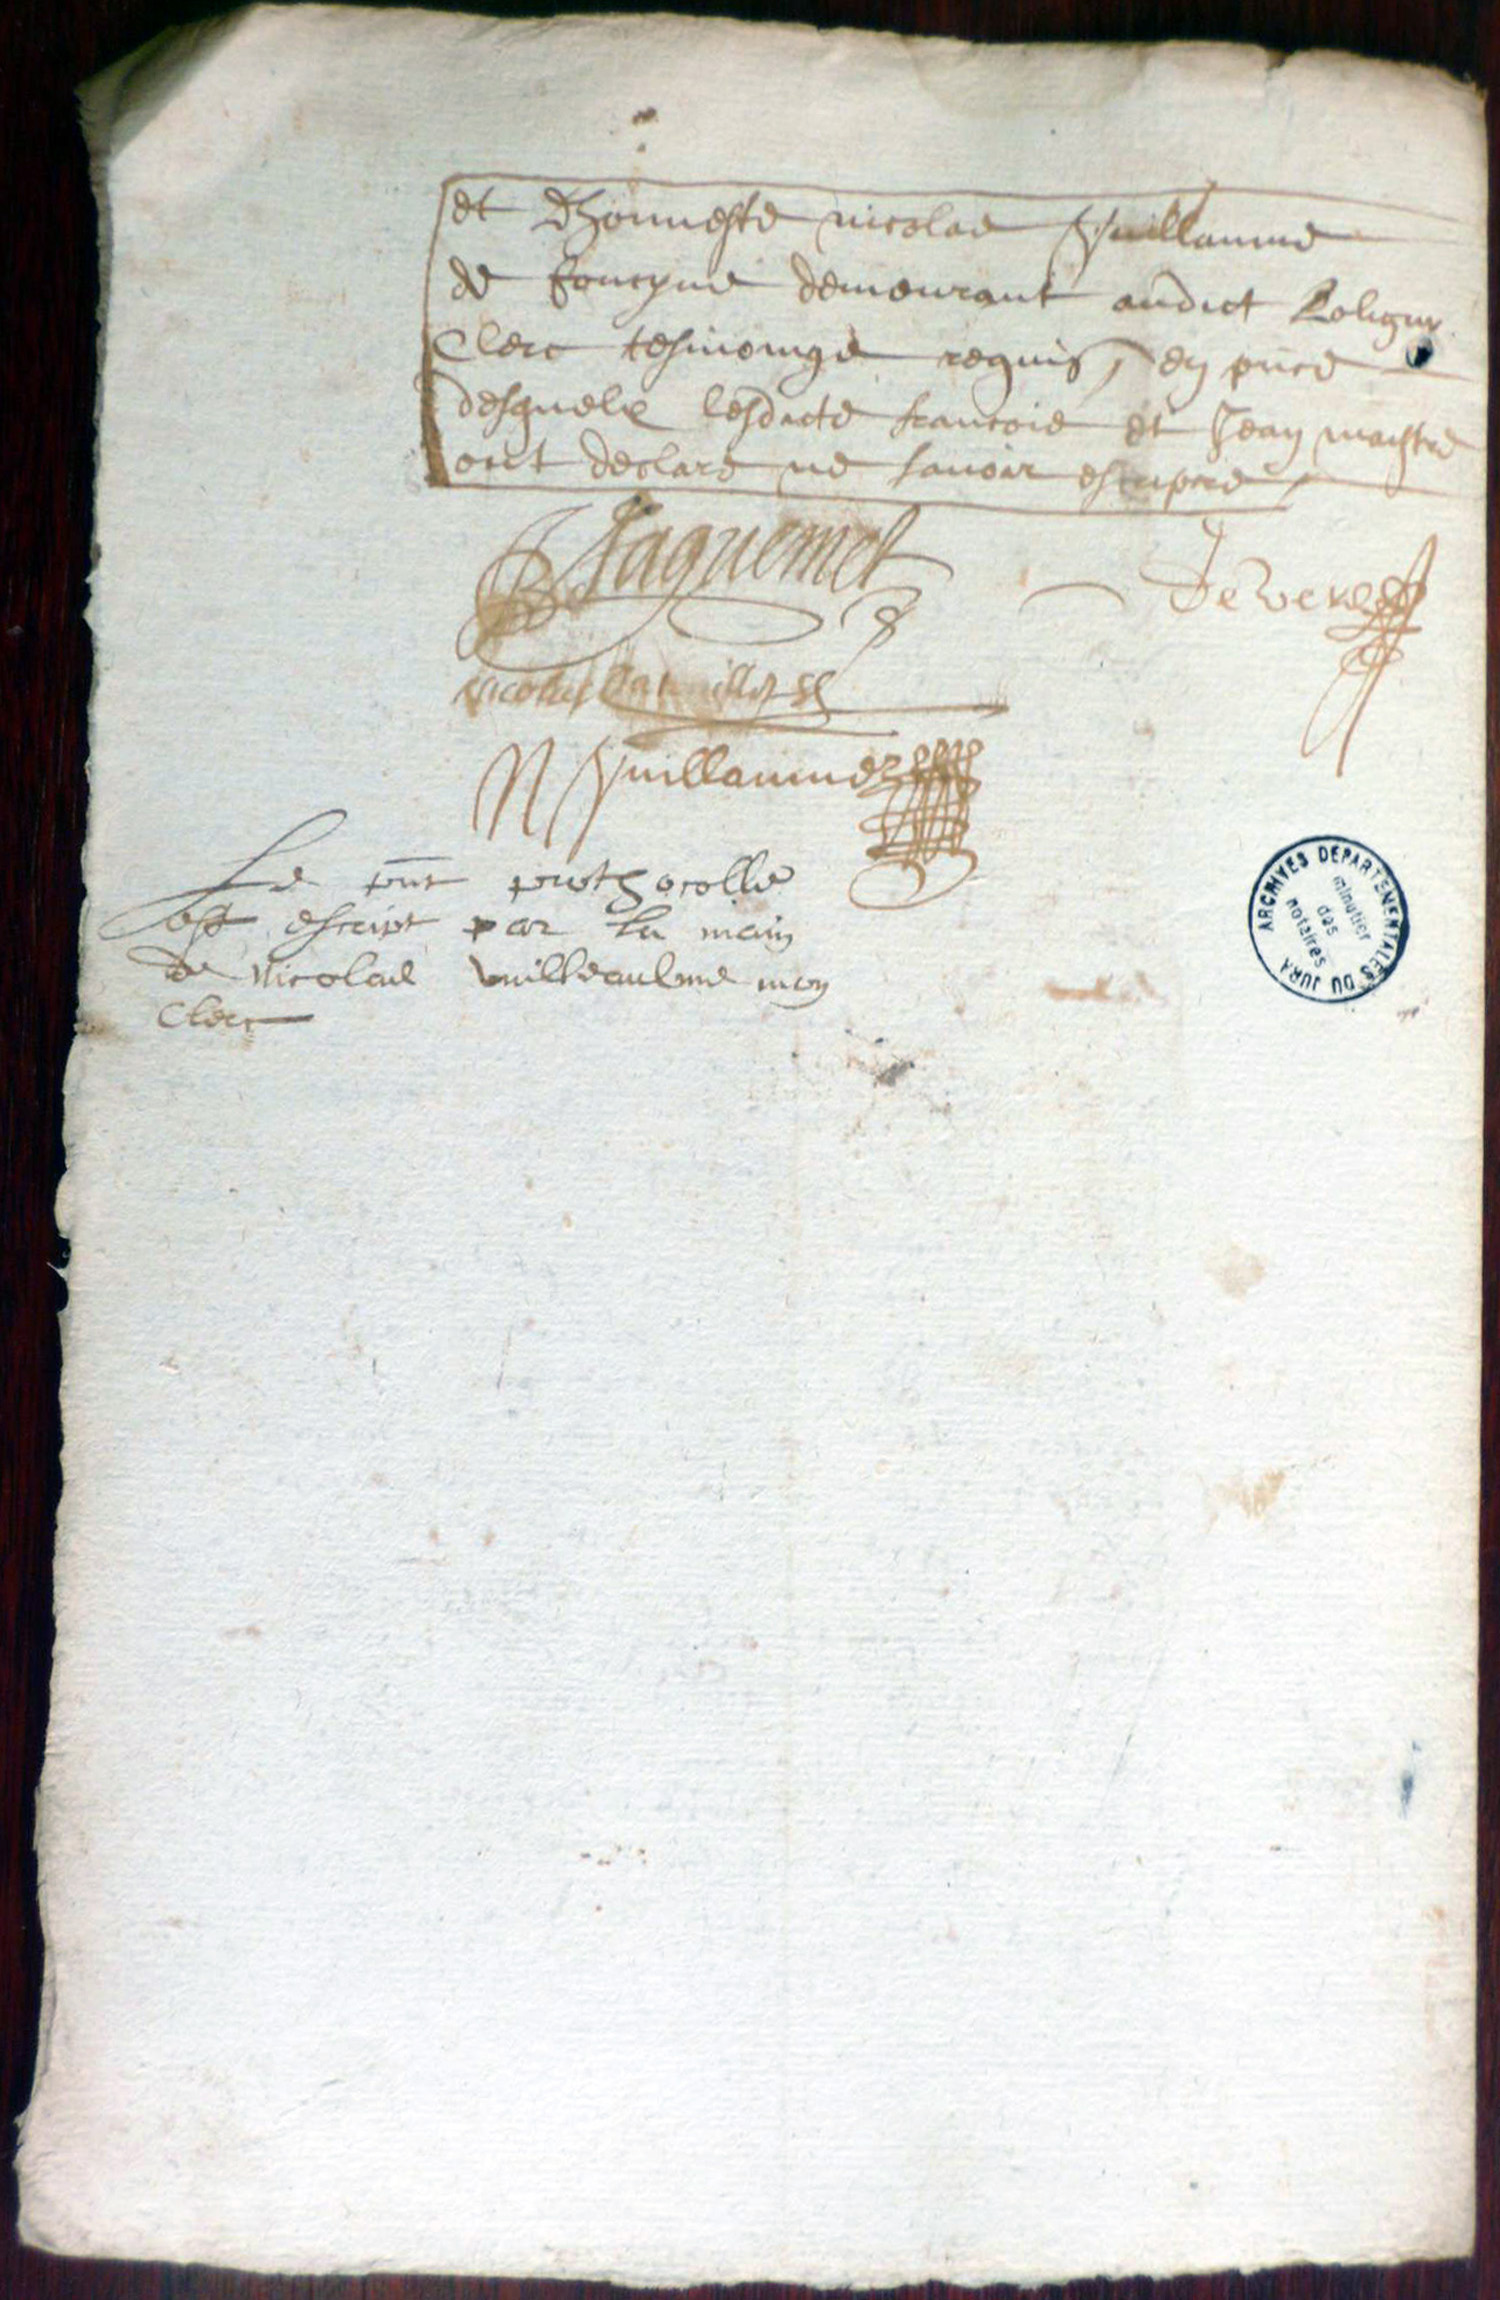 et dhonneste nicolas Vuillaume
de foncyne demeurant audict Poligny
Clerc tesmoings requis, en pnce
desquels lesdicts francois et Jean maistre
ont declare ne sauoir escripre
Jaquemet
De Vers
nicolas
N Vuillaume
Le pnt prothocolle
est escript par la main
de Nicolas Vuilleaulme mon
Clerc
ARCHIVES DEPARTEMENTALES DU JURA
minutier
des
notaires